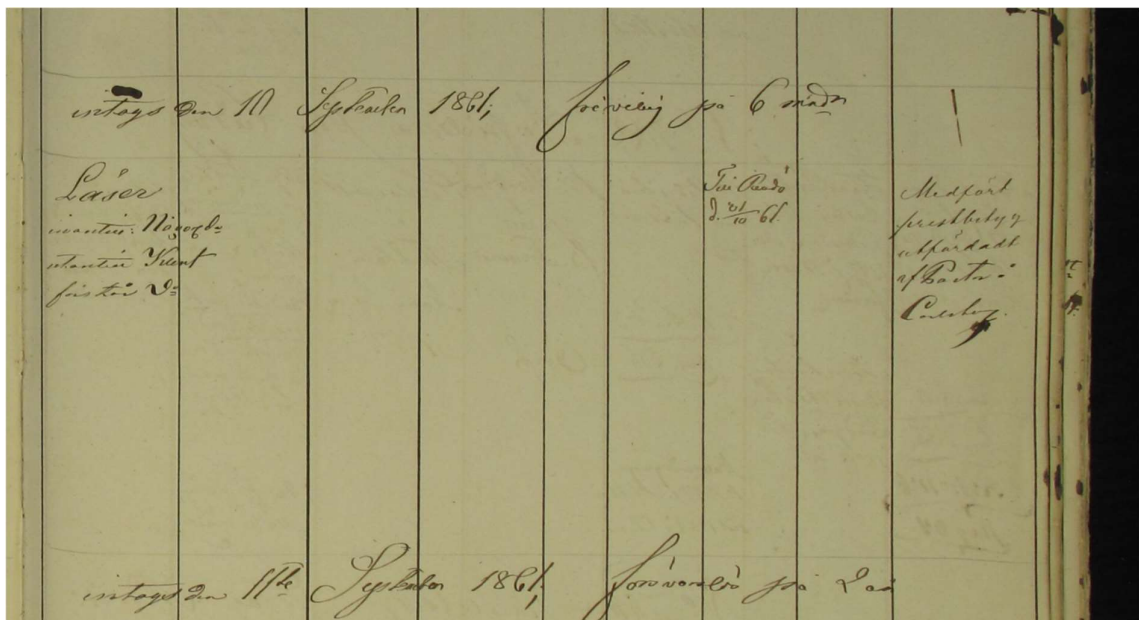 intogs den 10 September 1861, frivillig på 6 mådr
Läser
inantill: Någorl.
utantill Klent
förstår Do
Till
d. 21/10 61.
Medfört
prestbetyg
utfärdadt
af Pastor i
Carlsborg.
intogs den 11te September 1861, på 2 år